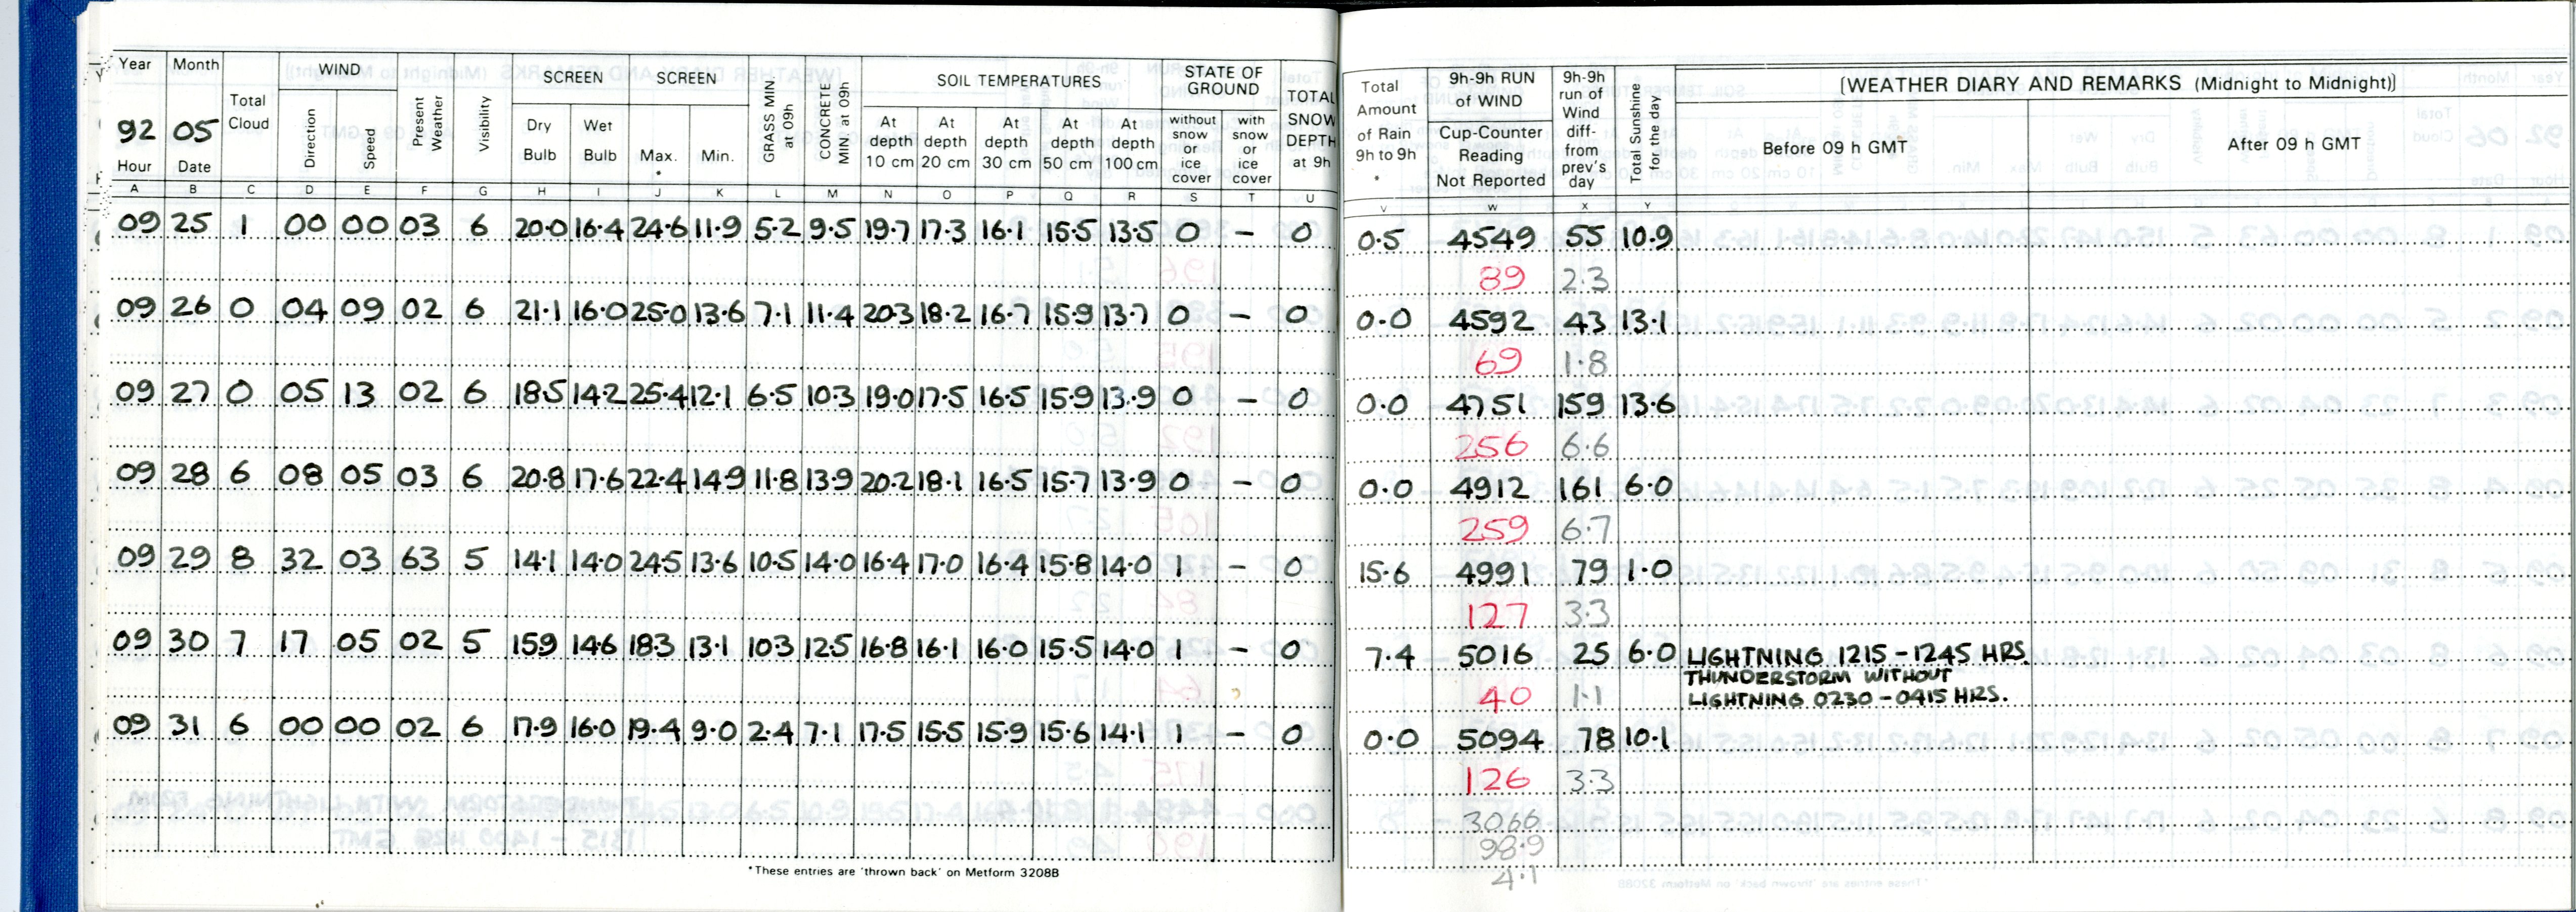 Year Month Total Cloud WIND Present Weather Visibility SCREEN SCREEN GRASS MIN at 09h CONCRETE MIN at 09h SOIL TEMPERATURES STATE OF GROUND TOTAL SNOW DEPTH at 9h Total Amount of Rain 9h to 9h * 9h-9h RUN of WIND 9h-9h run of Wind diff- from prev's day Total Sunshine for the day [WEATHER DIARY AND REMARKS (Midnight to Midnight)]
92 05 Direction Speed Dry Bulb Wet Bulb Max. * Min. At depth 10 cm At depth 20 cm At depth 30 cm At depth 50 cm At depth 100 cm without snow or ice cover with snow or ice cover Cup-Counter Reading Not Reported Before 09 h GMT After 09 h GMT
Hour Date
A B C D E F G H I J K L M N O P Q R S T U V W X Y
09 25 1 00 00 03 6 20.0 16.4 24.6 11.9 5.2 9.5 19.7 17.3 16.1 15.5 13.5 0 – 0 0.5 4549 55 10.9
89 2.3
09 26 0 04 09 02 6 21.1 16.0 25.0 13.6 7.1 11.4 20.3 18.2 16.7 15.9 13.7 0 – 0 0.0 4592 43 13.1
69 1.8
09 27 0 05 13 02 6 18.5 14.2 25.4 12.1 6.5 10.3 19.0 17.5 16.5 15.9 13.9 0 – 0 0.0 4751 159 13.6
256 6.6
09 28 6 08 05 03 6 20.8 17.6 22.4 14.9 11.8 13.9 20.2 18.1 16.5 15.7 13.9 0 – 0 0.0 4912 161 6.0
259 6.7
09 29 8 32 03 63 5 14.1 14.0 24.5 13.6 10.5 14.0 16.4 17.0 16.4 15.8 14.0 1 – 0 15.6 4991 79 1.0
127 3.3
09 30 7 17 05 02 5 15.9 14.6 18.3 13.1 10.3 12.5 16.8 16.1 16.0 15.5 14.0 1 – 0 7.4 5016 25 6.0 LIGHTNING 1215 – 1245 HRS.
THUNDERSTORM WITHOUT
40 1.1 LIGHTNING 0230 – 0415 HRS.
09 31 6 00 00 02 6 17.9 16.0 19.4 9.0 2.4 7.1 17.5 15.5 15.9 15.6 14.1 1 – 0 0.0 5094 78 10.1
126 3.3
3066
98.9
4.1
*These entries are 'thrown back' on Metform 3208B